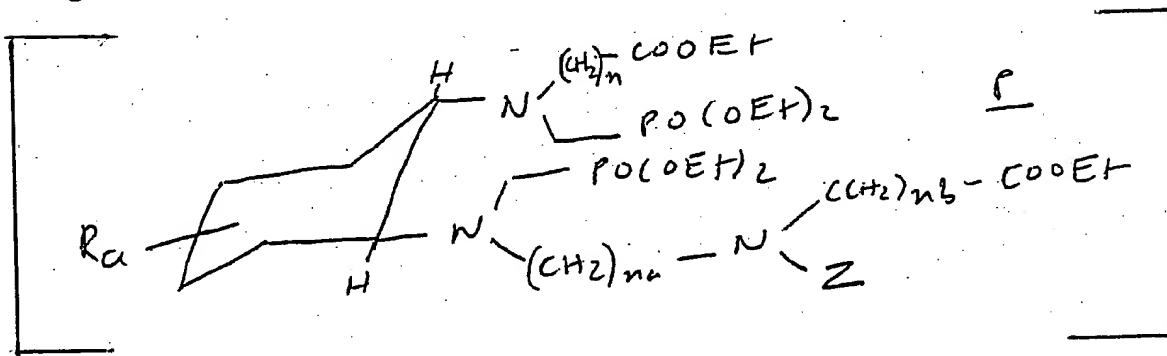 (CH2)n COOEt
H
N
PO(OEt)2
P
PO(OEt)2
((CH2)nb - COOEt
Ra
N
N
(CH2)na
Z
H